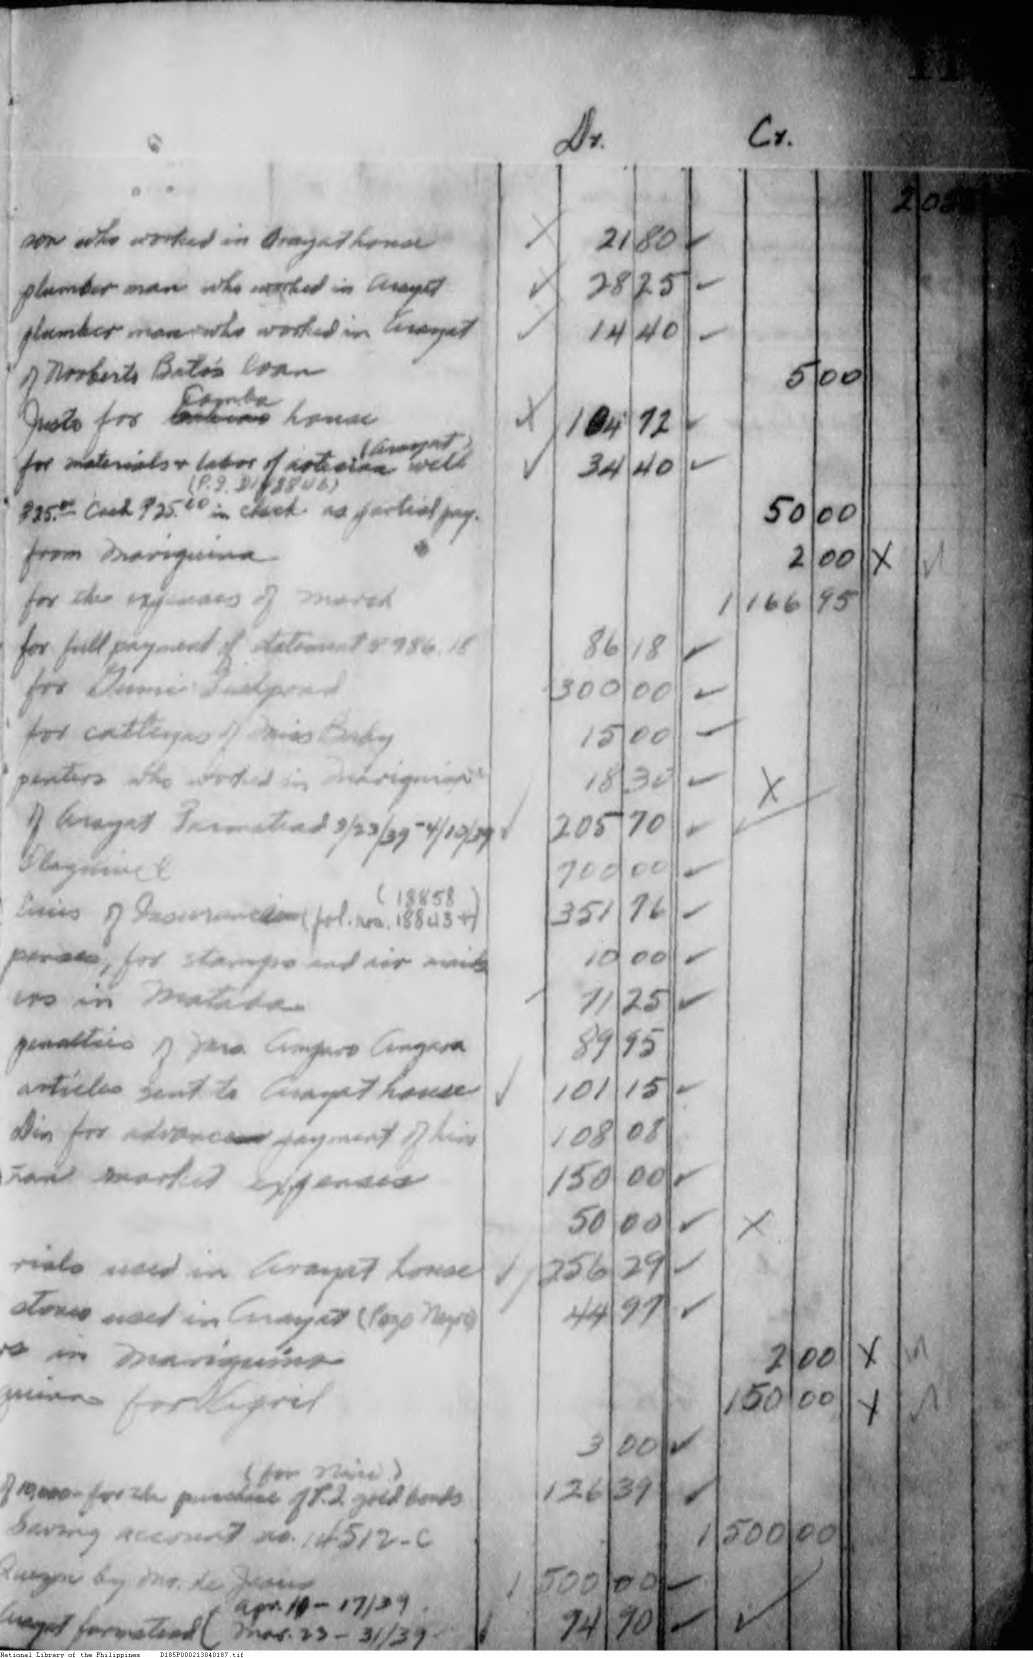 11
Dr. Cr.
202
son who worked in Arayat house X 21 80 ✓
plumber man who worked in Arayat ✓ 28 25 ✓
plumber man who worked in Arayat ✓ 14 40 ✓
of Norberto Bato's loan 5 00
Comba
Justo for house X 104 72 ✓
(Arayat)
for materials & labor of artesian well ✓ 34 40 ✓
₱25.00 Cash ₱25.00 in check as partial pay. 50 00
from Mariquina 2 00 X ✓
for the expenses of March 1 166 95
for full payment of statement 986.18 86 18 ✓
for 300 00 ✓
for of Miss Baby 15 00 ✓
penters who worked in Mariquina 18 30 ✓ X
of Arayat Farmstead 3/23/39-4/10/39 ✓ 205 70 ✓ ✓
700 00 ✓
(18858
of Insurance (pol. nos. 18843 +) 351 76 ✓
penses, for stamps and air mails 10 00 ✓
ers in 71 25 ✓
penalties of Mrs. Amparo Angara 89 95
articles sent to Arayat house ✓ 101 15 ✓
Din for advance payment of his 108 08
market expenses 150 00 ✓
50 00 ✓ X
rials used in Arayat house ✓ 256 29 ✓
stones used in Arayat (Pozo Negro) 44 97 ✓
rs in Mariquina 2 00 X ✓
quina for April 150 00 X ✓
3 00 ✓
(for Nini)
of 10,000 for the purchase of P.I. gold bonds 126 39 ✓
Saving account no. 14512-C 1 500 00
Quezon by Mr. de Jesus 1 500 00 ✓
Apr. 10-17/39
Arayat farmstead (Mar. 23-31/39 94 90 ✓ ✓
National Library of the Philippines D185P000213040187.tif